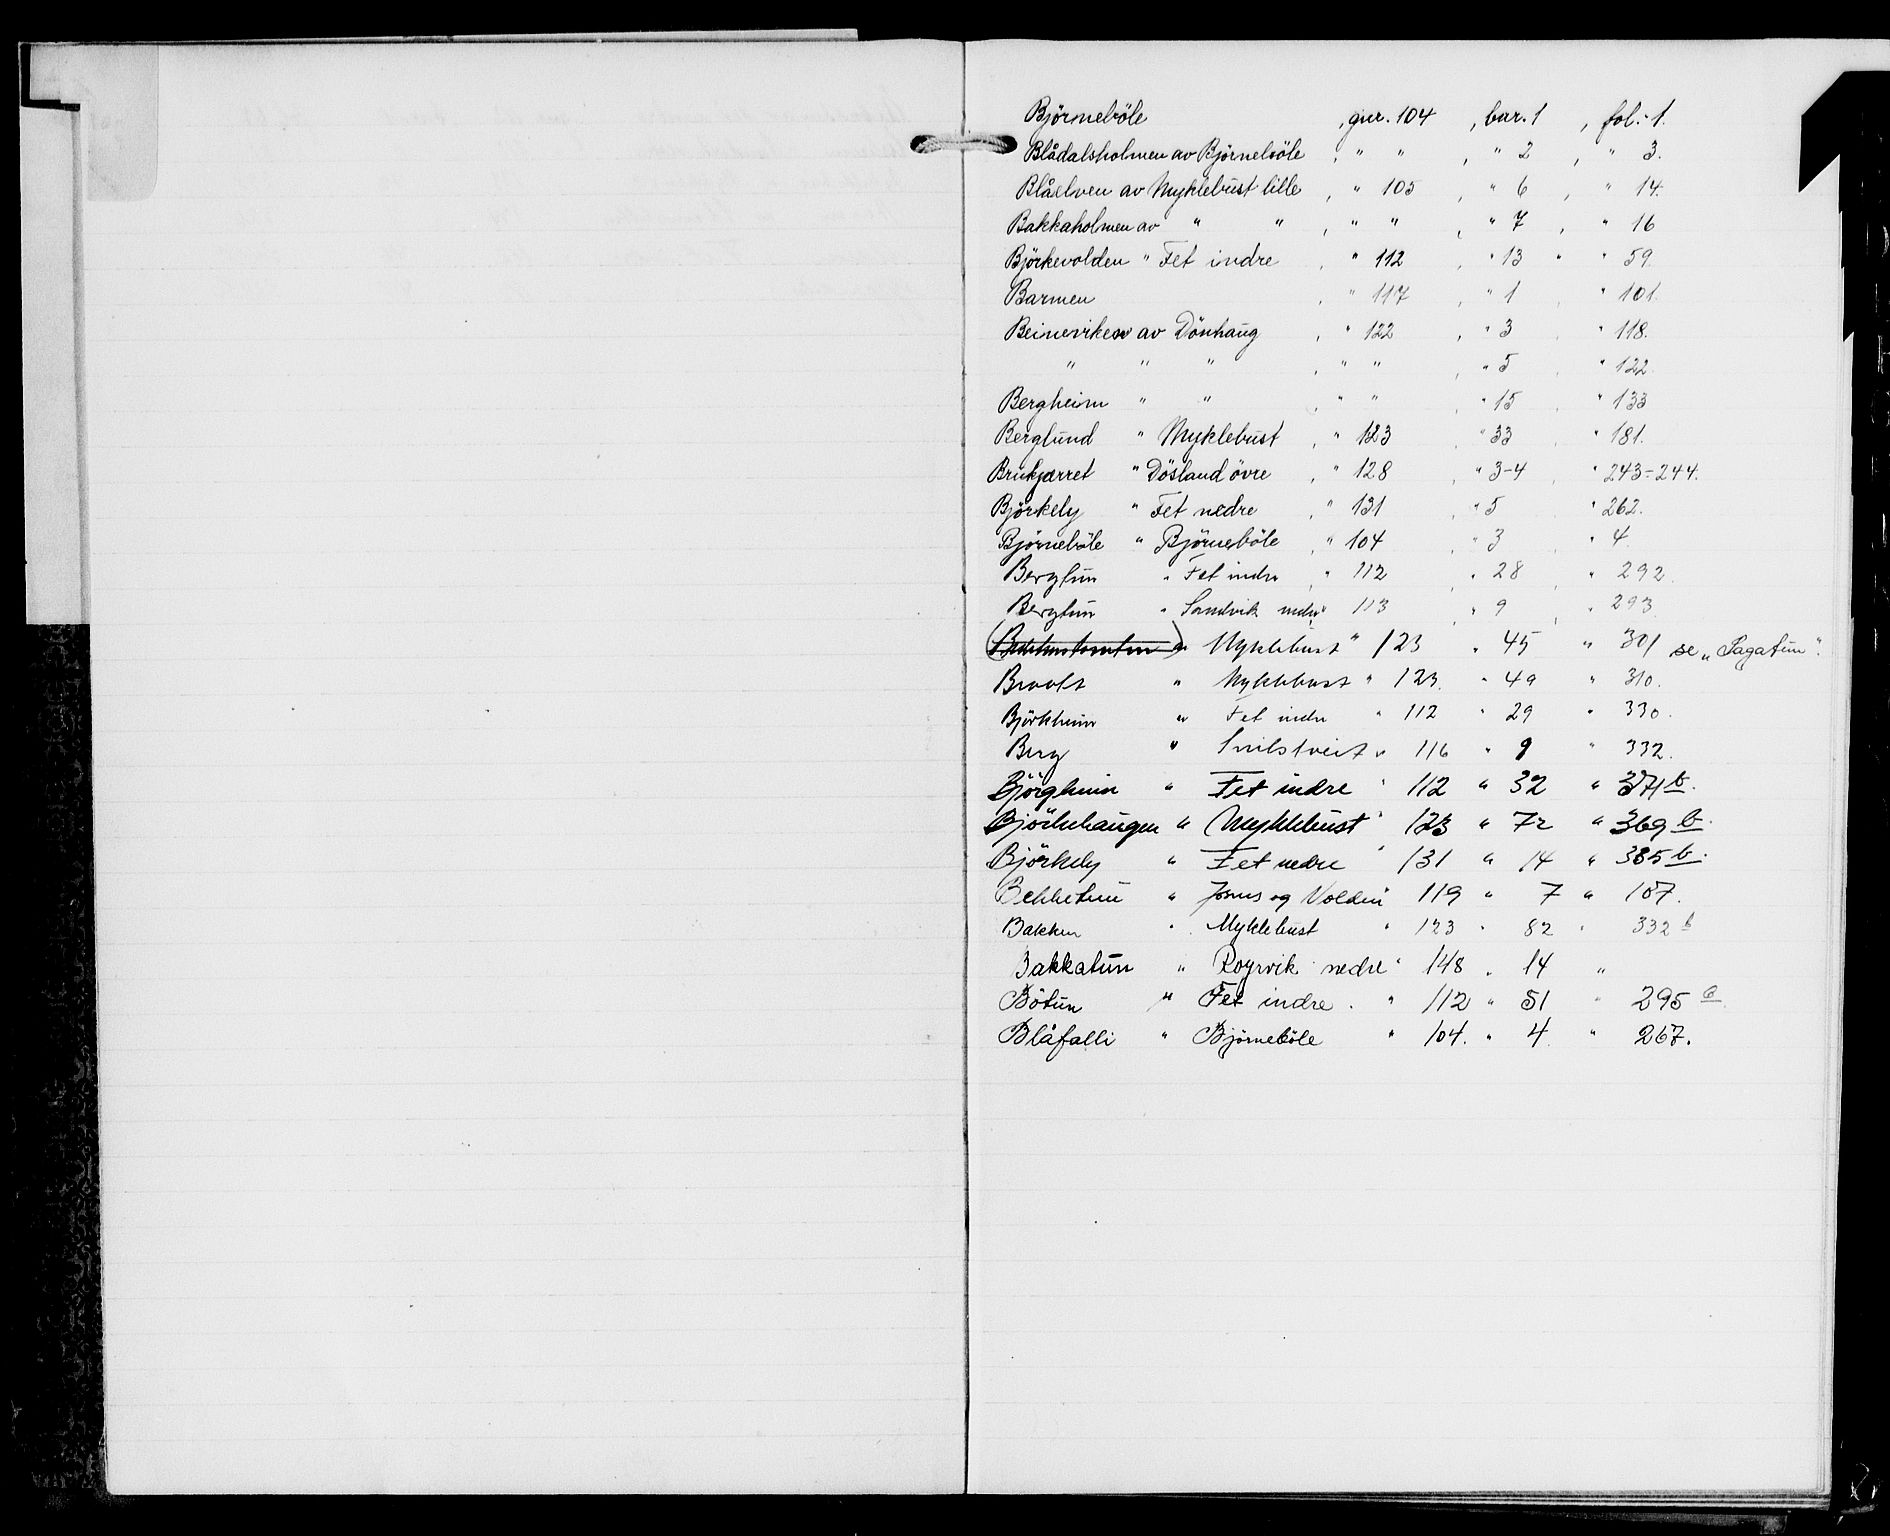 Björneböle , gnr. 104 , bnr. 1 , fol. 1.
Blådalsholmen av Björneböle , " " , " 2 , " 3.
Blåelven av Myklebust lille , " 105 , " 6 , " 14.
Bakkaholmen av " " , " " , " 7 , " 16
Björkevolden " Fet indre , " 112 , " 13 " " 59.
Barmen , " 117 , " 1 , " 101.
Beineviken av Dönhaug , " 122 , " 3 , " 118.
" " " , " " , " 5 , " 122.
Bergheim " " , " " , " 15 , " 133
Berglund " Myklebust , " 123 , " 33 , " 181.
Brukjærret " Dösland övre , " 128 , " 3-4 , " 243-244.
Björkely " Fet nedre , " 131 , " 5 , " 262.
Björneböle " Björneböle , " 104 , " 3 , " 4.
Bergtun " Fet indre , " 112 , " 28 , " 292.
Bergtun " Sandvik nedre " 113 , " 9 , " 293.
" Myklebust " 123 " 45 " 301 se „Sagatun".
" Myklebust " 123. " 49 " 310.
Björkheim " Fet indre " 112 " 29 " 330.
Berg " " 116 " 9 " 332.
Björgheim " Fet indre " 112 " 32 " 371 b.
Björkehaugen " Myklebust " 123 " 72 " 369 b.
Björkely " Fet nedre " 131 " 14 " 385 b.
Bekketun " og Volden " 119 " 7 " 107.
Bakken " Myklebust " 123 " 82 " 332 b
Bakkatun " Royrvik nedre " 148 " 14 "
Bötun " Fet indre . " 112 " 51 " 295 a.
Blåfalli " Björneböle " 104. " 4. " 267.